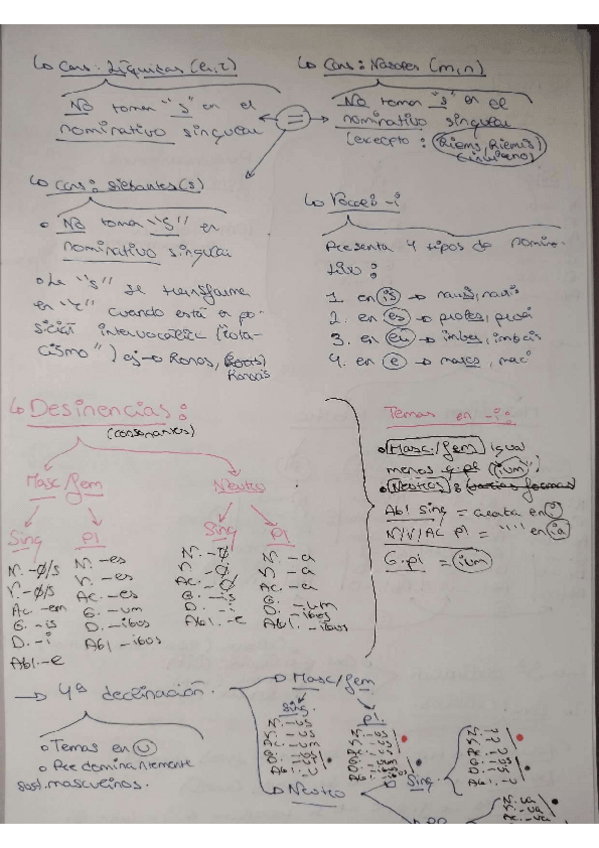 ↳ Cons: Líquidas (l, r)
No toman "s" en el
nominativo singular
↳ Cons: Nasales (m, n)
No toman "s" en el
nominativo singular
(excepto: Hiems, Hiemis)
(invierno)
=
↳ Cons: Silbantes (s)
• No toma "s" en
nominativo singular
• La "s" se transforma
en "r" cuando está en po-
sición intervocálica ("rota-
cismo") ej → Honos,
Honoris
↳ Vocal -i
Presenta 4 tipos de nomina-
tivo:
1. en is → navis, navis
2. en es →
3. en er → imber, imbris
4. en e →
↳ Desinencias:
(consonantes)
Masc/fem
Sing
N. -Ø/s
V. -Ø/s
Ac. -em
G. -is
D. -i
Abl. -e
Pl
N. -es
V. -es
Ac. -es
G. -um
D. -ibus
Abl. -ibus
Neutro
Sing
N. -Ø
V. -Ø
Ac. -Ø
G. -is
D. -i
Abl. -e
Pl
N. -a
V. -a
Ac. -a
G. -um
D. -ibus
Abl. -ibus
Temas en -i:
• Masc./fem igual
menos g.pl (ium)
• Neutros:
Abl sing = acaba en i
N/V/AC pl = " " en ia
G.pl = ium
→ 4ª declinación.
• Temas en u
• Predominantemente
sust. masculinos.
Masc/fem
Sing
Pl
Neutro
Sing
N. ua